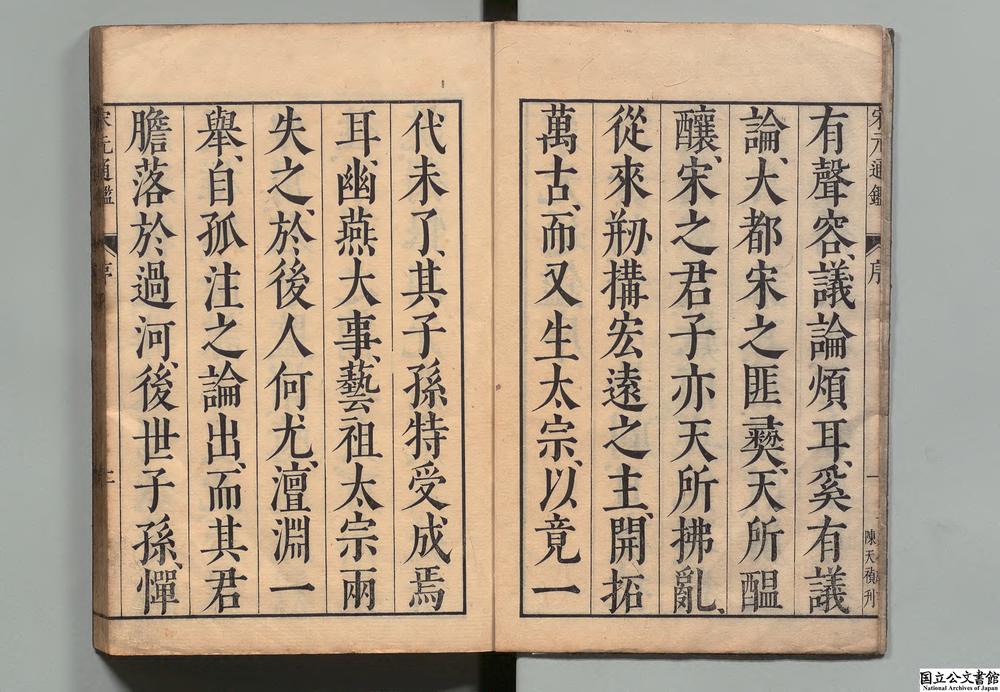 宋元通鑑 序 一 陳天禎刊
有聲容、議論煩耳、奚有議
論、大都宋之匪彝、天所醞
釀、宋之君子亦天所拂亂、
從來剏搆宏遠之主、開拓
萬古、而又生太宗、以竟一
代未了、其子孫特受成焉
耳、幽燕大事、藝祖太宗兩
失之、於後人何尤、澶淵一
舉、自孤注之論出、而其君
膽落於過河、後世子孫、憚
宋元通鑑 序
國立公文書館
National Archives of Japan